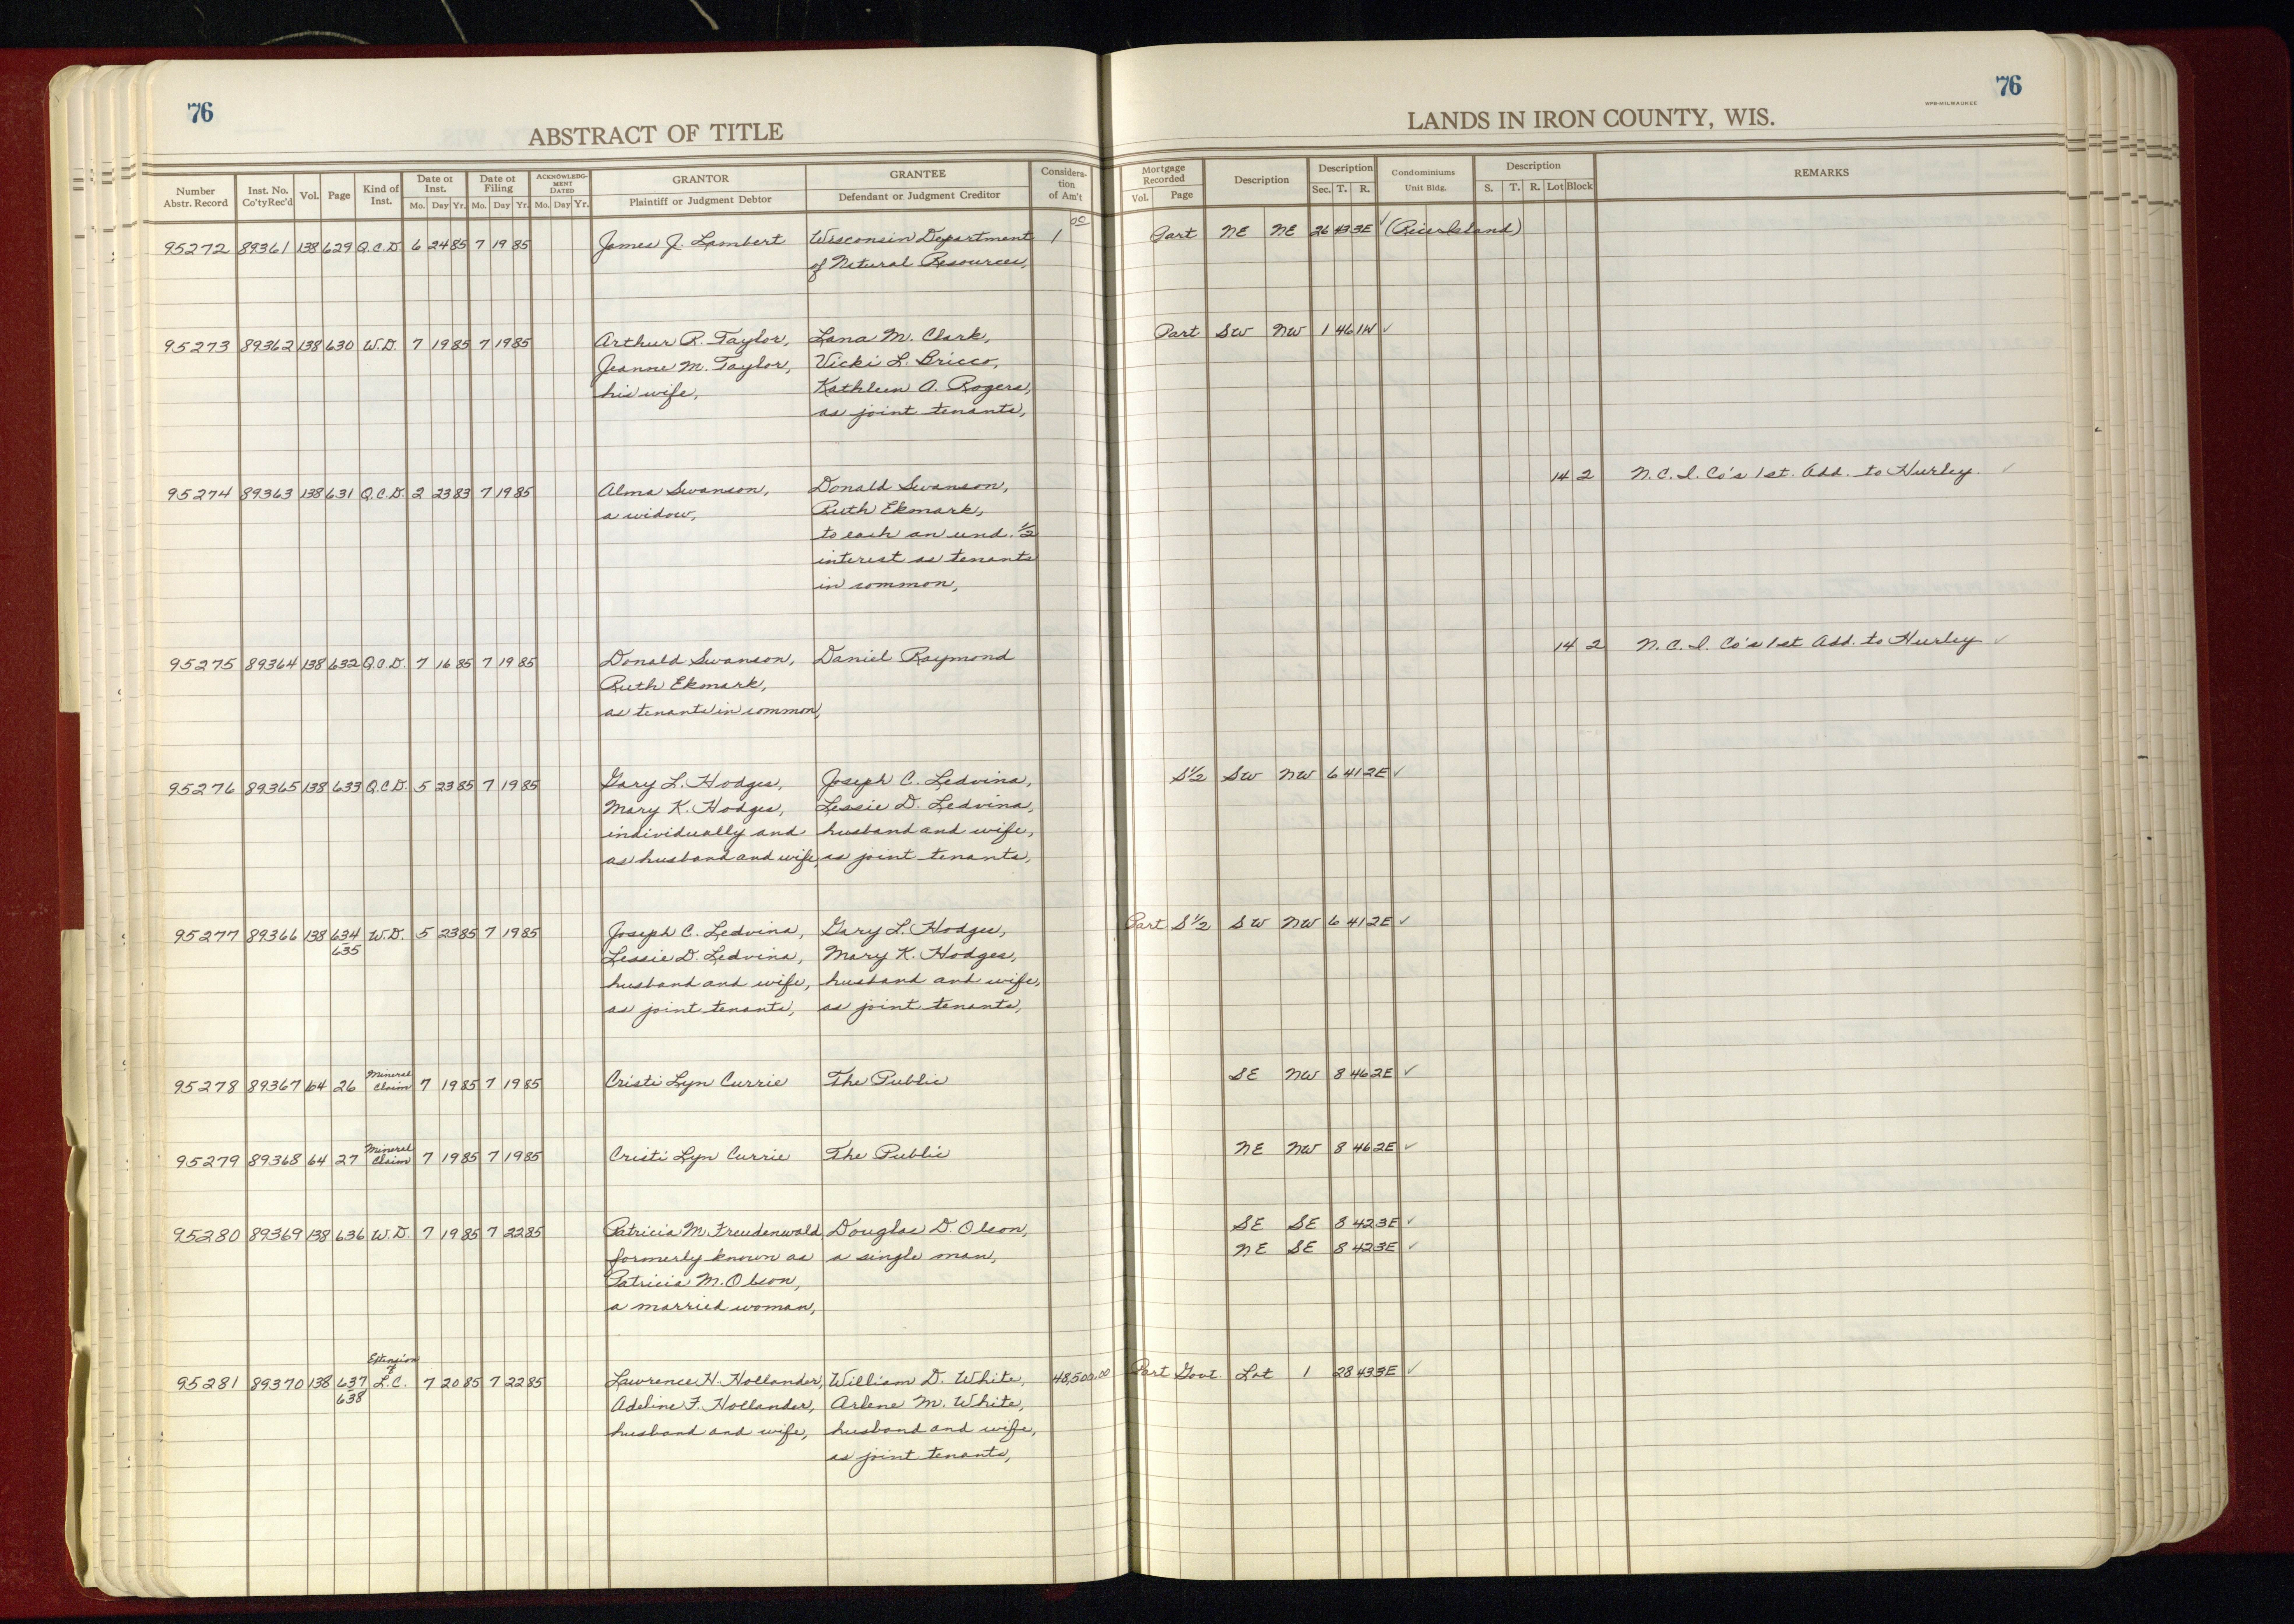 76
ABSTRACT OF TITLE
Number Abstr. Record | Inst. No. Co'ty Rec'd | Vol. | Page | Kind of Inst. | Date of Inst. Mo. Day Yr. | Date of Filing Mo. Day Yr. | ACKNOWLEDGMENT DATED Mo. Day Yr. | GRANTOR Plaintiff or Judgment Debtor | GRANTEE Defendant or Judgment Creditor | Consideration of Am't
76
WPB-MILWAUKEE
LANDS IN IRON COUNTY, WIS.
Mortgage Recorded Vol. Page | Description | Description Sec. T. R. | Condominiums Unit Bldg. | Description S. T. R. Lot Block | REMARKS
95272 89361 138 629 Q.C.D. 6 24 85 7 19 85 James J. Lambert Wisconsin Department 1 00 Part NE NE 26 43 3E ✓
of Natural Resources,
95273 89362 138 630 W.D. 7 19 85 7 19 85 Arthur R. Taylor, Lana M. Clark, Part SW NW 1 46 1W ✓
Jeanne M. Taylor, Vicki L. Bricco,
his wife, Kathleen A. Rogers,
as joint tenants,
95274 89363 138 631 Q.C.D. 2 23 83 7 19 85 Alma Swanson, Donald Swanson, 14 2 N.C.I. Co's 1st. Add. to Hurley. ✓
a widow, Ruth Ekmark,
to each an und. 1/2
interest as tenants
in common,
95275 89364 138 632 Q.C.D. 7 16 85 7 19 85 Donald Swanson, Daniel Raymond 14 2 N.C.I. Co's 1st Add. to Hurley ✓
Ruth Ekmark,
as tenants in common,
95276 89365 138 633 Q.C.D. 5 23 85 7 19 85 Gary L. Hodges, Joseph C. Ledvina, S1/2 SW NW 6 41 2E ✓
Mary K. Hodges, Lessie D. Ledvina,
individually and husband and wife,
as husband and wife, as joint tenants,
95277 89366 138 634 W.D. 5 23 85 7 19 85 Joseph C. Ledvina, Gary L. Hodges, Part S1/2 SW NW 6 41 2E ✓
635 Lessie D. Ledvina, Mary K. Hodges,
husband and wife, husband and wife,
as joint tenants, as joint tenants,
95278 89367 64 26 Mineral Claim 7 19 85 7 19 85 Cristi Lyn Currie The Public SE NW 8 46 2E ✓
95279 89368 64 27 Mineral Claim 7 19 85 7 19 85 Cristi Lyn Currie The Public NE NW 8 46 2E ✓
95280 89369 138 636 W.D. 7 19 85 7 22 85 Patricia M. Freudenwald, Douglas D. Olson, SE SE 8 42 3E ✓
formerly known as a single man, NE SE 8 42 3E ✓
Patricia M. Olson,
a married woman,
95281 89370 138 637 Extension of L.C. 7 20 85 7 22 85 Lawrence H. Hollander, William D. White, 48,500.00 Part Govt. Lot 1 28 43 3E ✓
638 Adeline F. Hollander, Arlene M. White,
husband and wife, husband and wife,
as joint tenants,